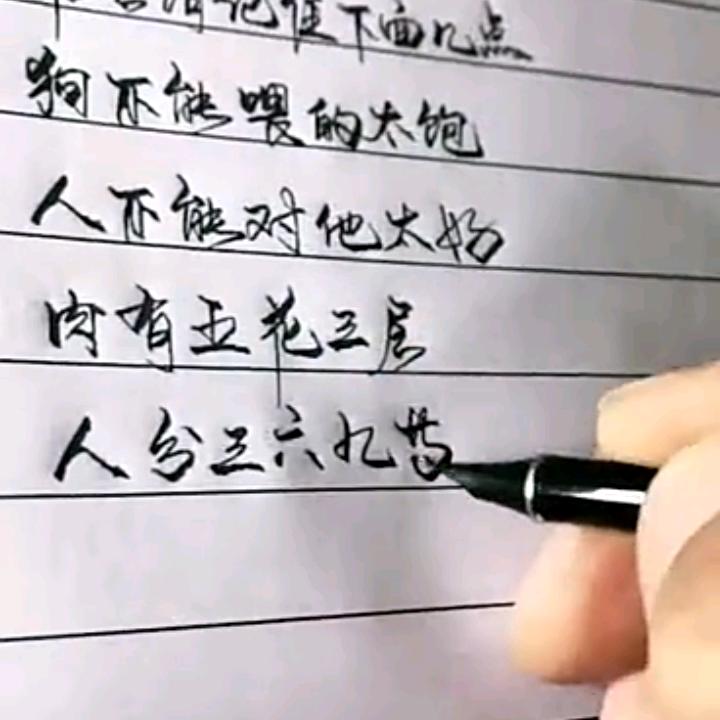 记住下面几点
狗不能喂的太饱
人不能对他太好
肉有五花三层
人分三六九等